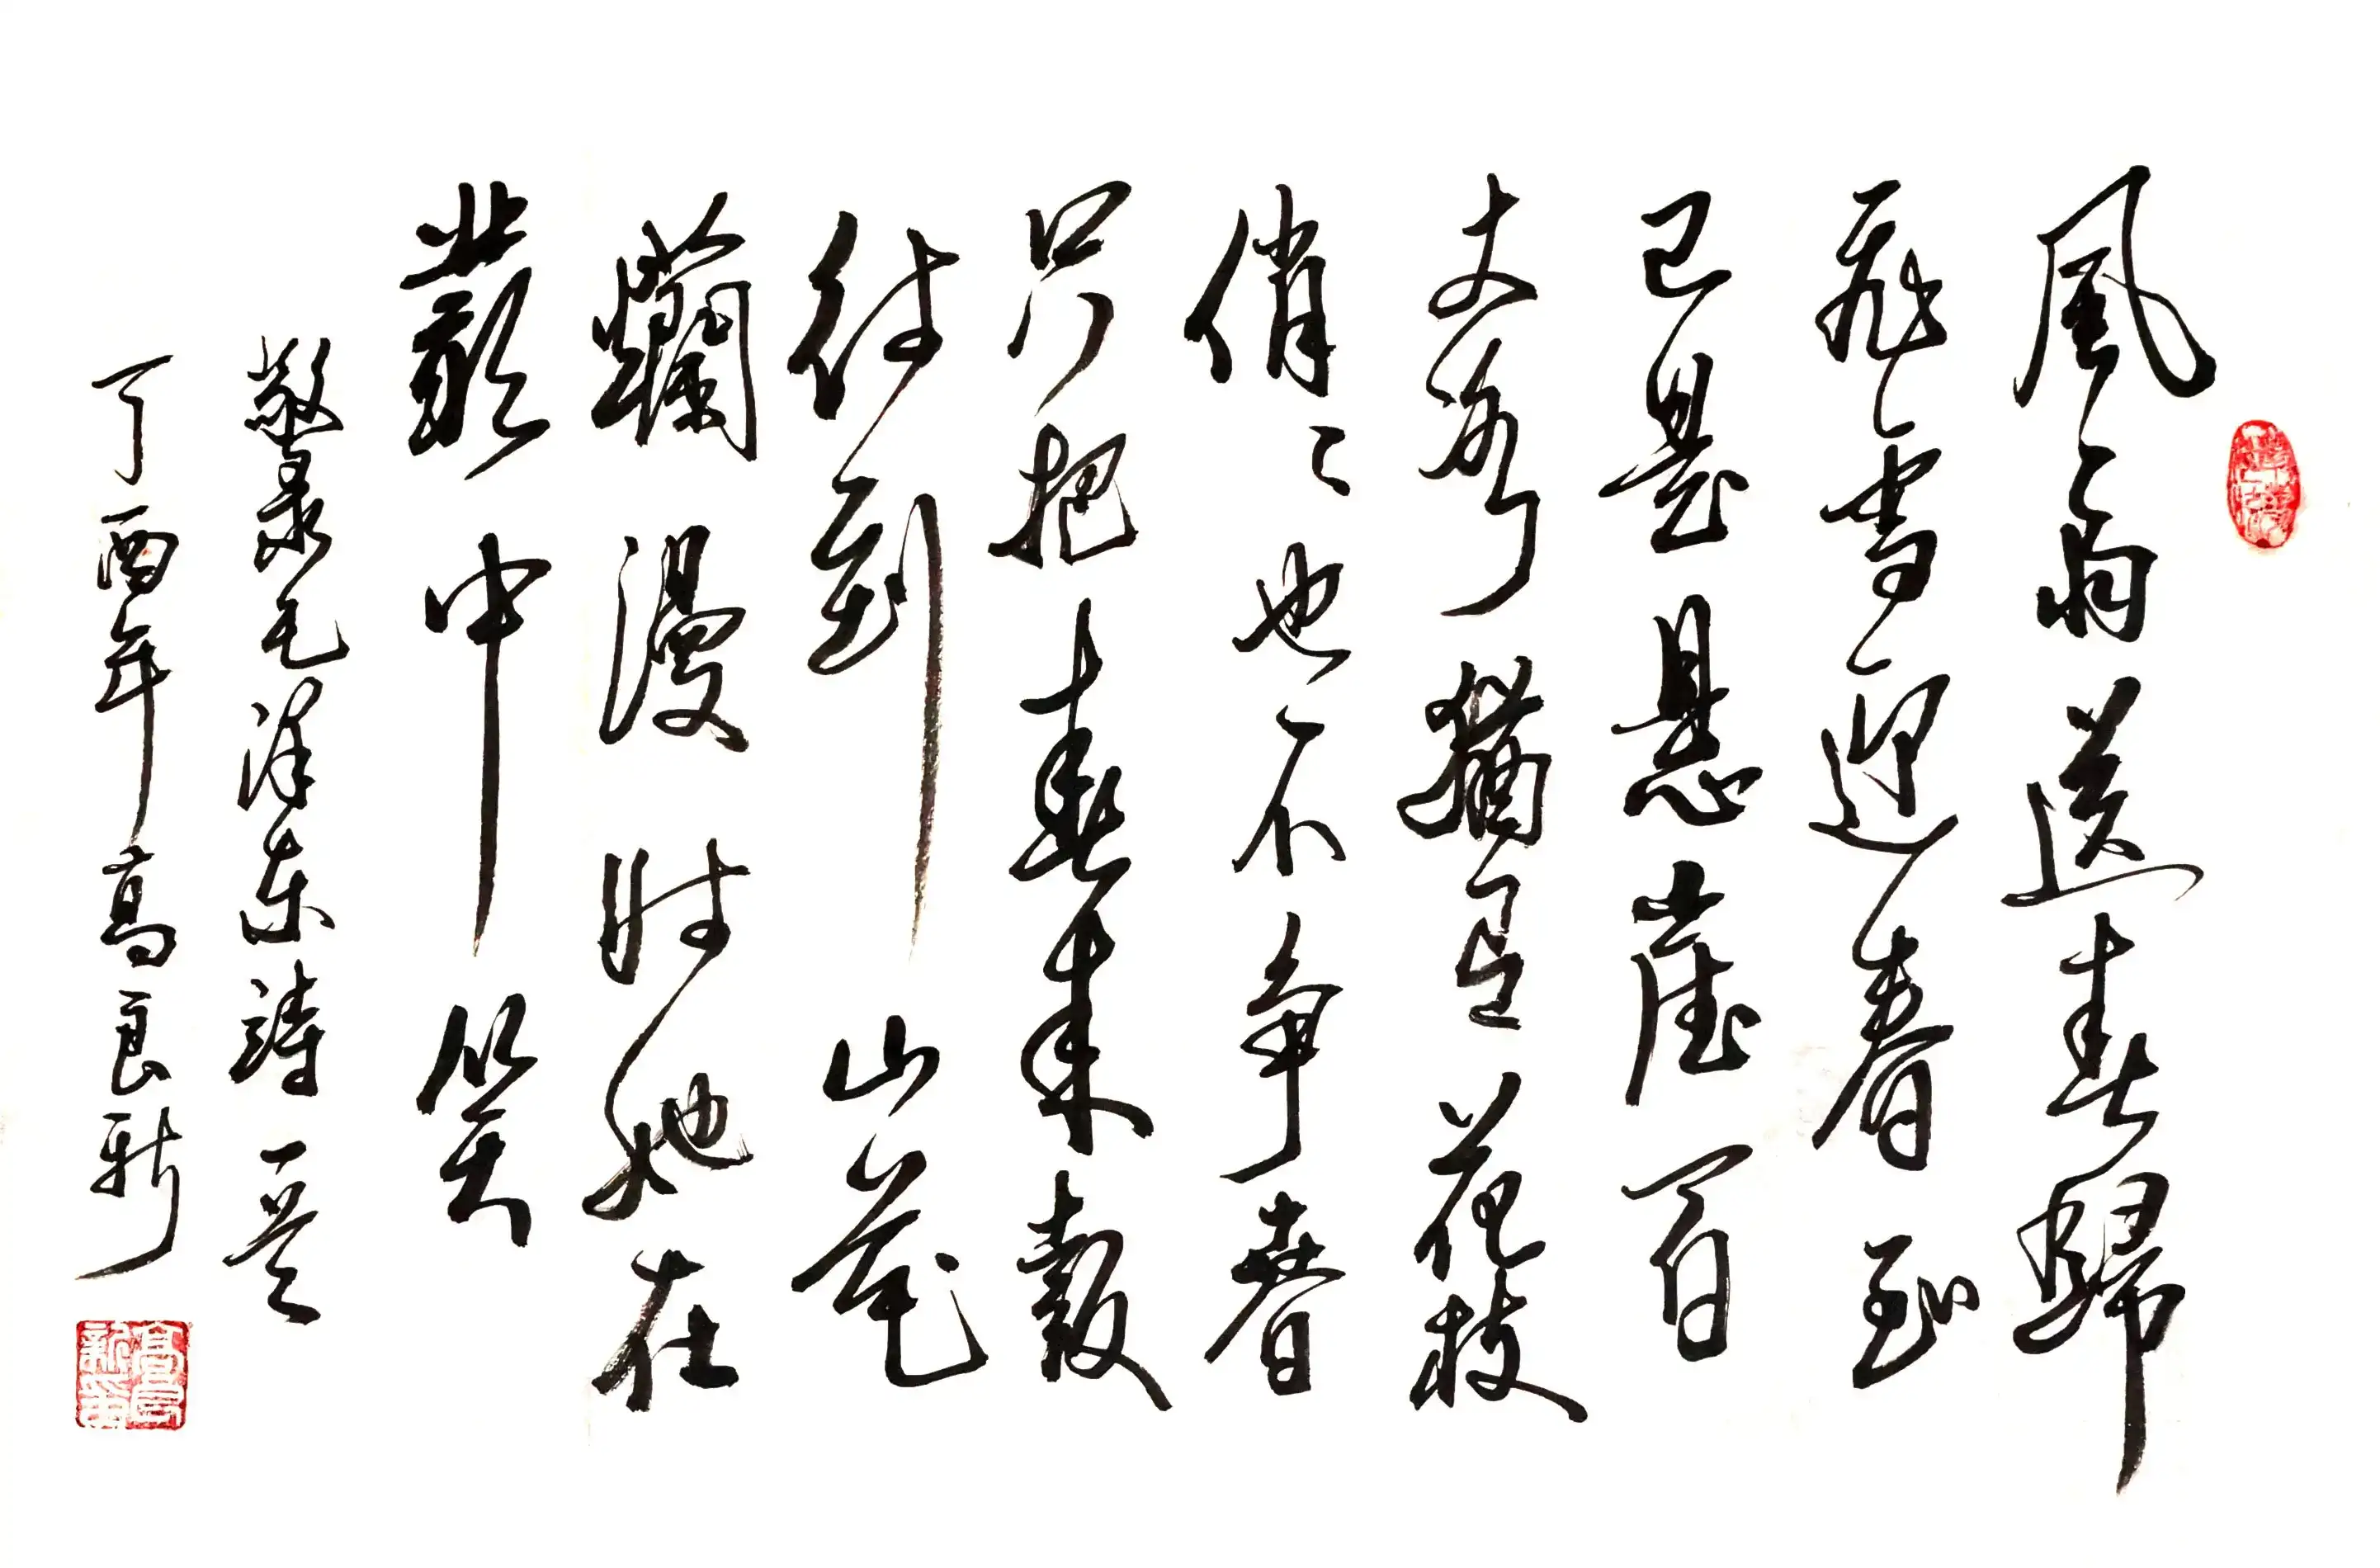 風雨送春歸
飛雪迎春到
已是悬崖百
丈冰猶有花枝
俏々也不争春
只把春来報
待到山花
爛漫時她在
叢中笑
敬录毛泽东詩一首
丁酉年高良新
高良新印